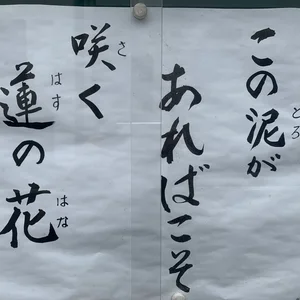 この泥が
どろ
あればこそ
咲く
さ
蓮の花
はす
はな